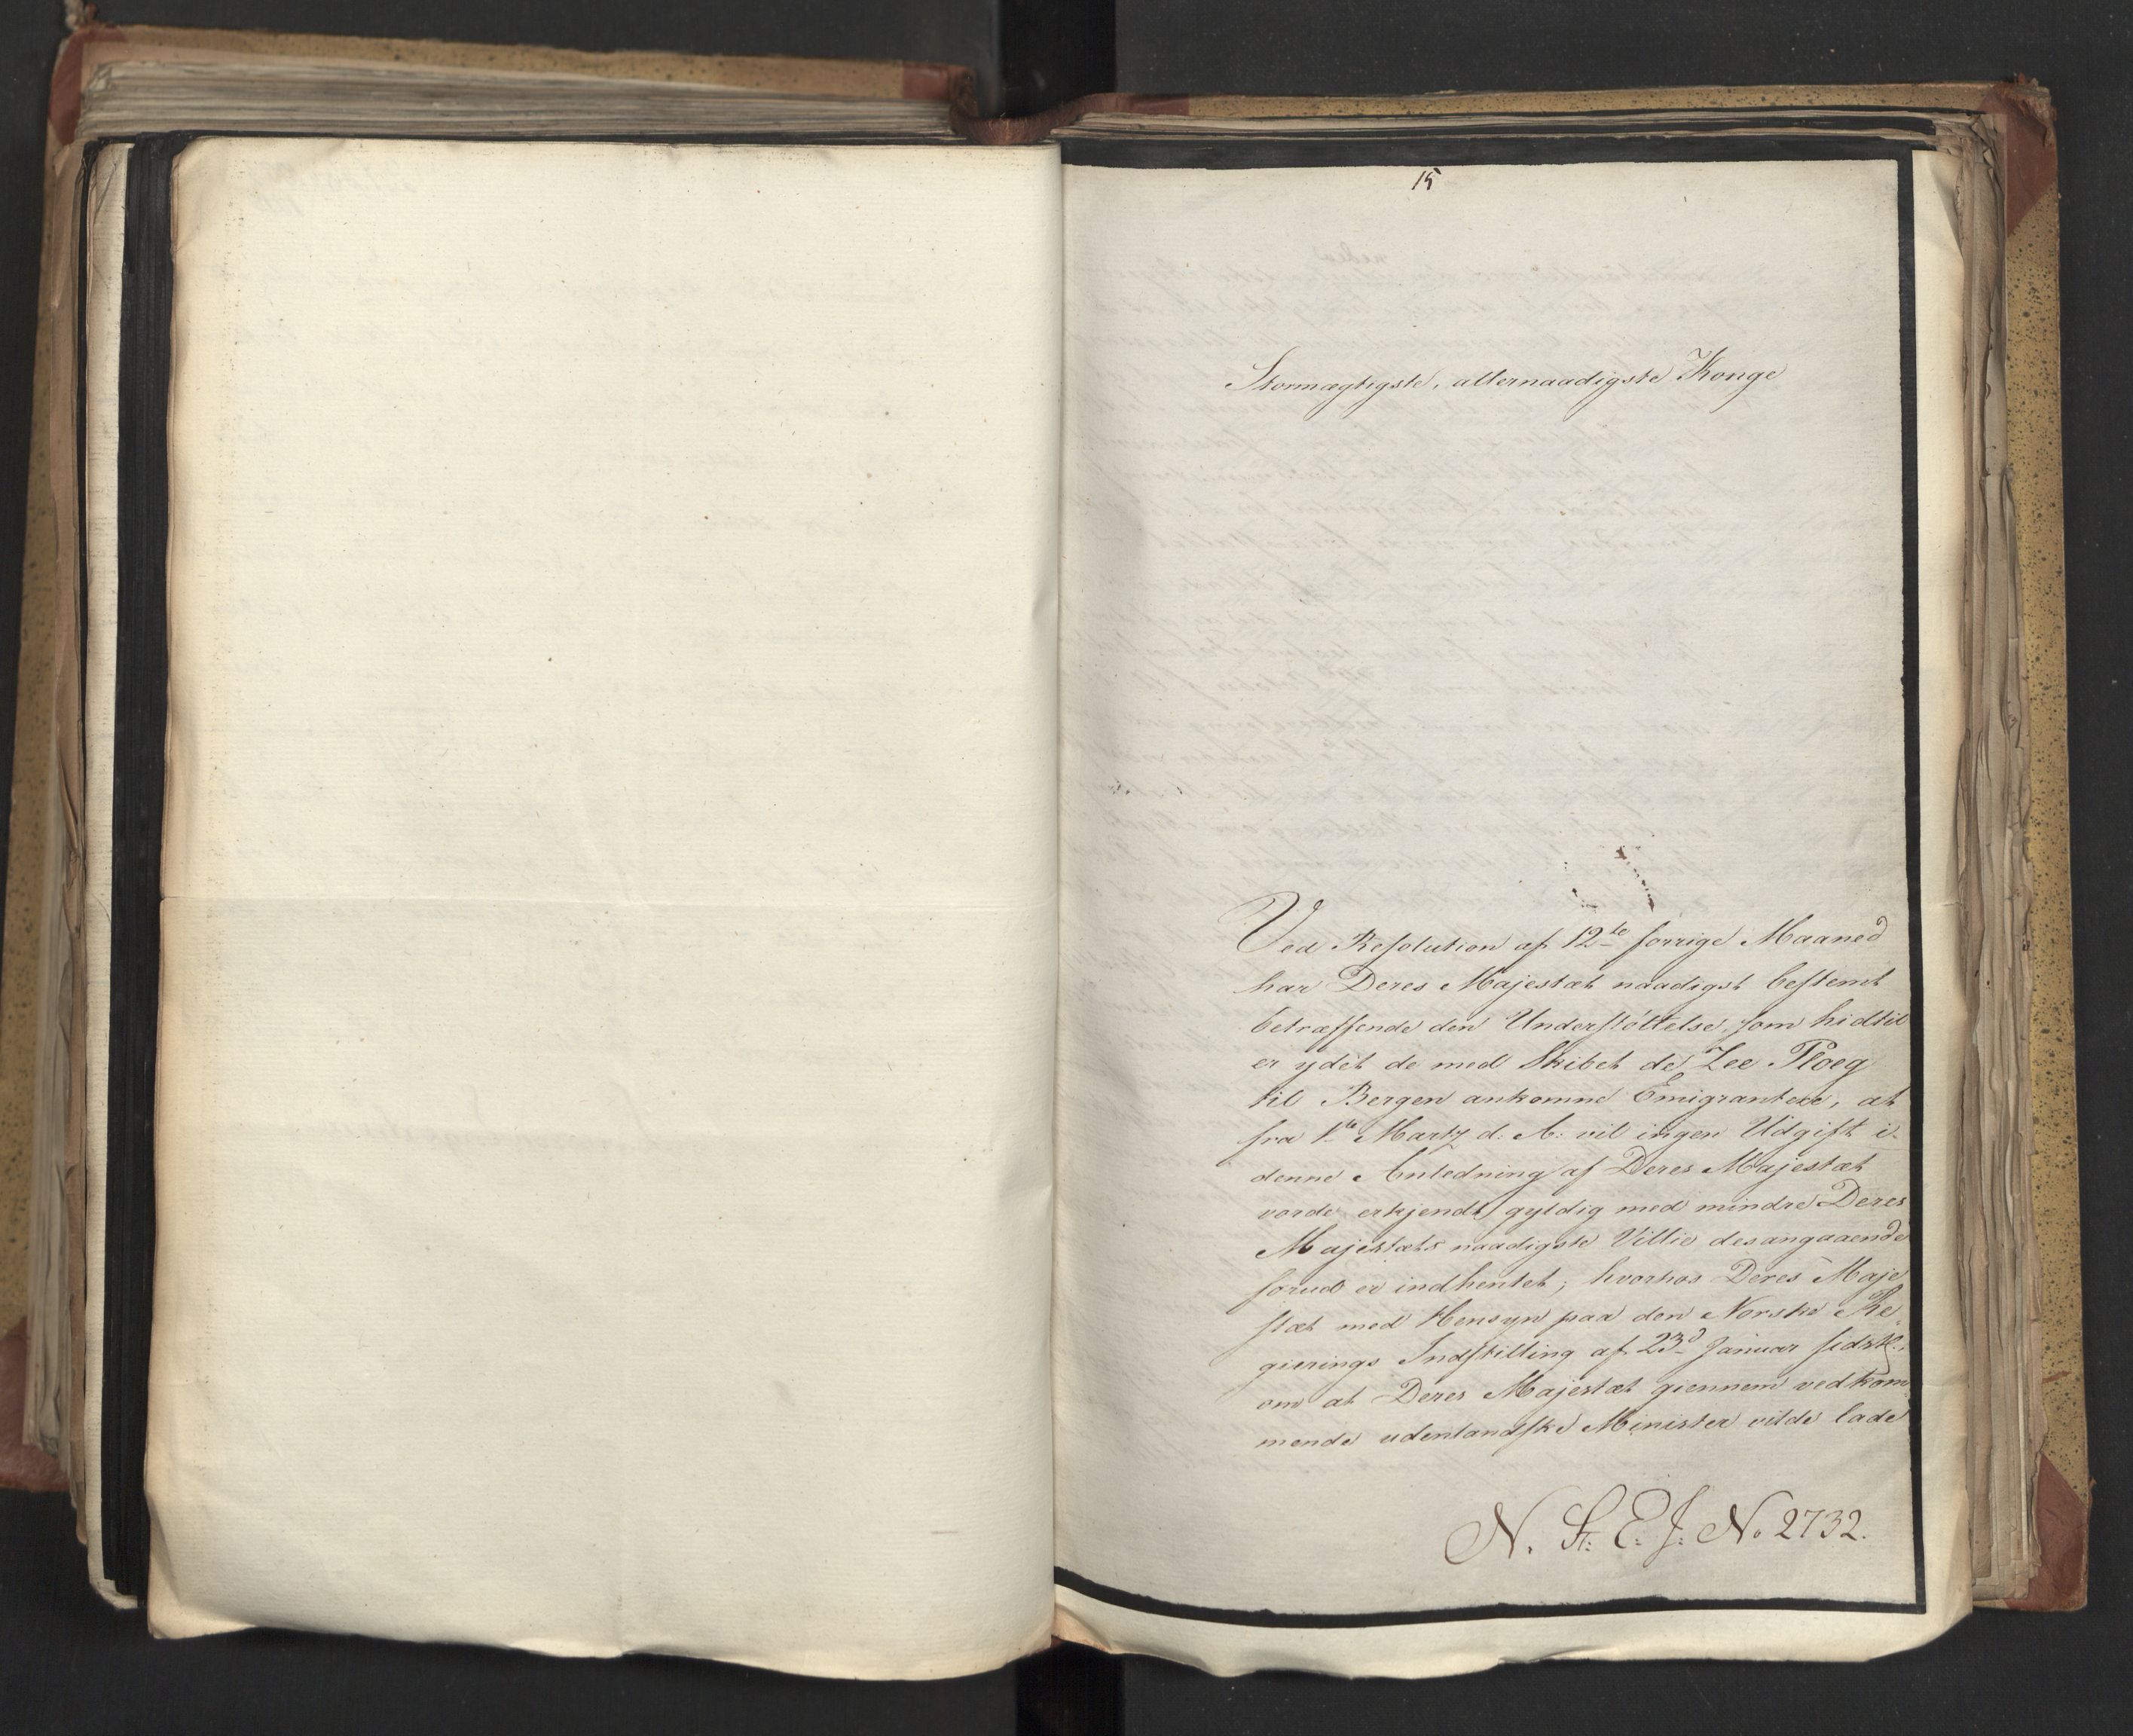 15
Stormægtigste, allernaadigste Konge
Ved Resolution af 12te forrige Maaned
har Deres Majestæt naadigst bestemt
betræffende den Understøttelse, som hidtil
er ydet de med Skibet de Zee Ploeg
til Bergen ankomne Emigrantere, at
fra 1te Martz d. A: vil ingen Udgift i
denne Anledning af Deres Majestæt
vorde erkjendt gyldig med mindre Deres
Majestæts naadigste Villie desangaaende
forud er indhentet; hvorhos Deres Maje
stæt med Hensyn paa den Norske Re,
gierings Indstilling af 23d Januar sidstl.,
om at Deres Majestæt giennem vedkom
mende udenlandske Minister vilde lade
N. St: E. J: No 2732.